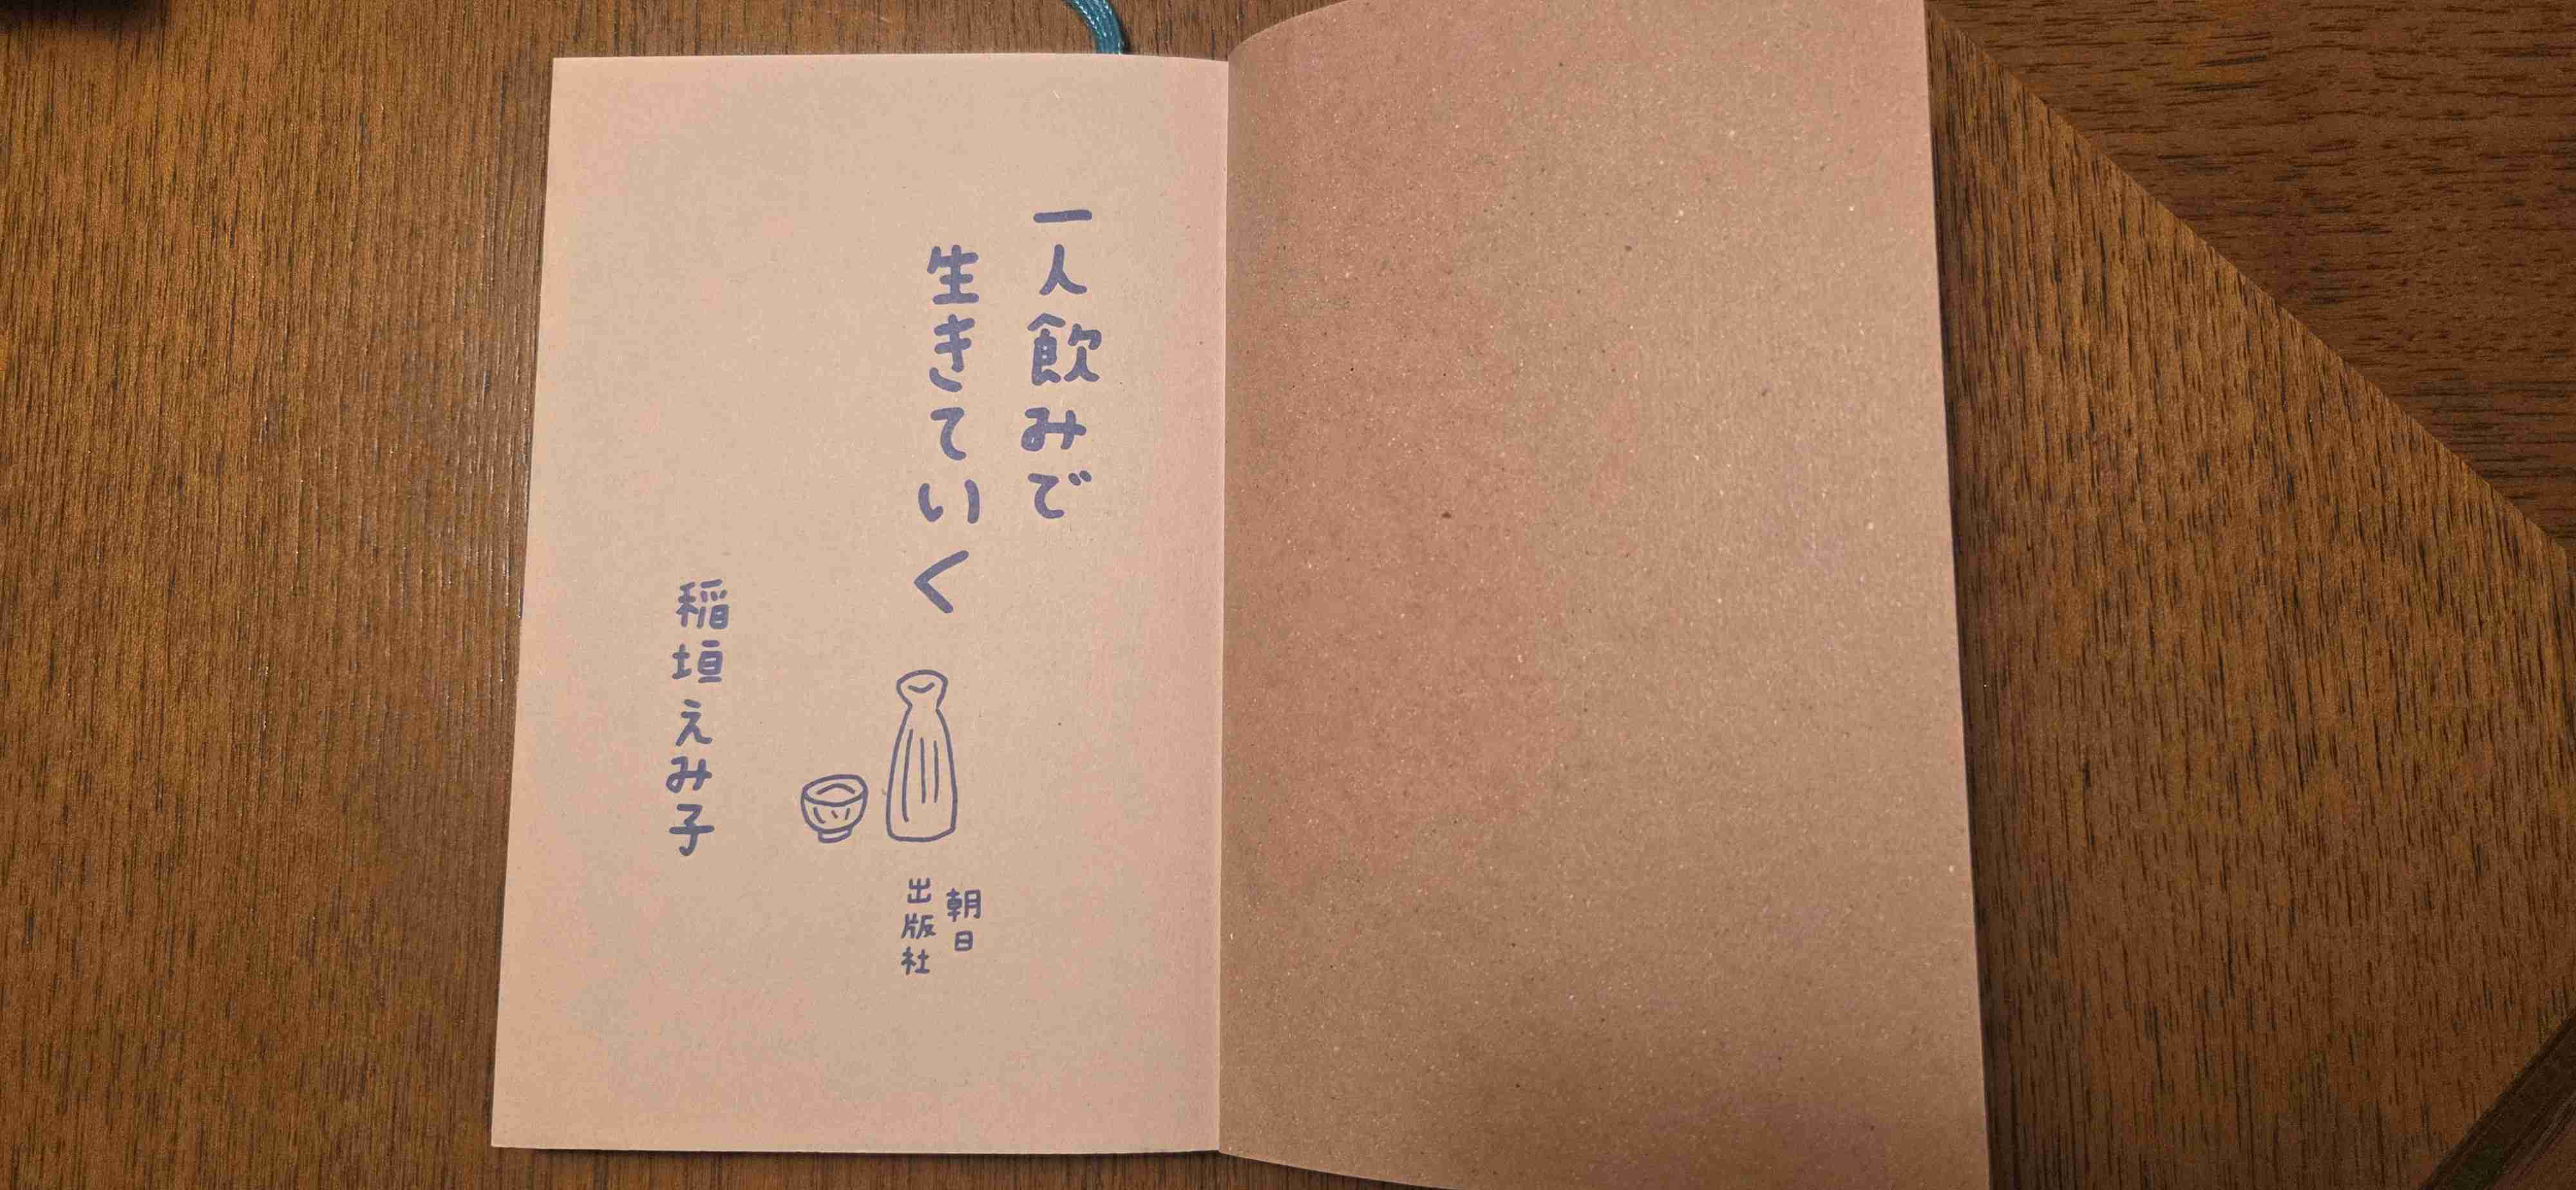 一人飲みで
生きていく
稲垣えみ子
朝日
出版社